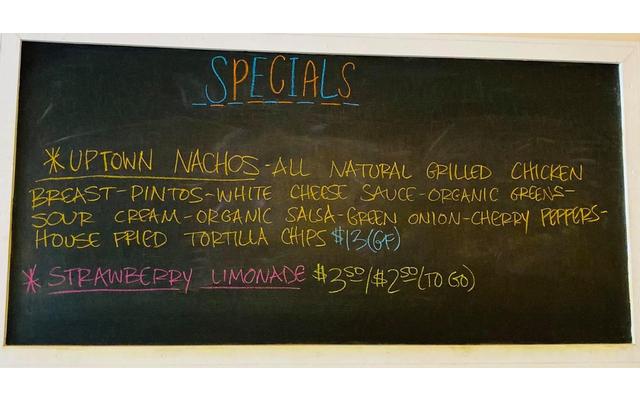 SPECIALS
*UPTOWN NACHOS-ALL NATURAL GRILLED CHICKEN
BREAST-PINTOS-WHITE CHEESE SAUCE-ORGANIC GREENS-
SOUR CREAM-ORGANIC SALSA-GREEN ONION-CHERRY PEPPERS-
HOUSE FRIED TORTILLA CHIPS $13(GF)
* STRAWBERRY LIMONADE $3.50/$2.50(TO GO)